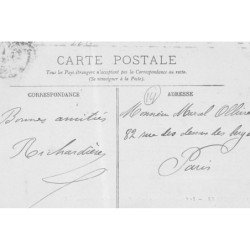 CARTE POSTALE
Tous les Pays étrangers n'acceptent pas la Correspondance au recto.
(Se renseigner à la Poste).
CORRESPONDANCE
ADRESSE
Bonnes amitiés
Richardière
Monsieur Marcel
82 rue des
Paris